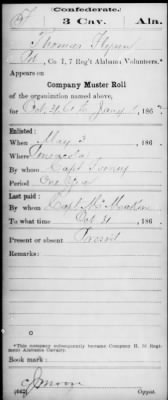 (Confederate.)
3 Cav. Ala.
Thomas Flynn
Pvt, Co. I, 7 Reg't Alabama Volunteers.*
Appears on
Company Muster Roll
of the organization named above,
for Oct 31, 61 to Jany 1, 186
Enlisted:
When May 3, 186
Where Pensacola
By whom Capt
Period One Year
Last paid:
By whom Capt
To what time Oct 31, 186
Present or absent Present
Remarks:
*This company subsequently became Company H, 3d Regiment Alabama Cavalry.
Book mark:
(642) Copyist.